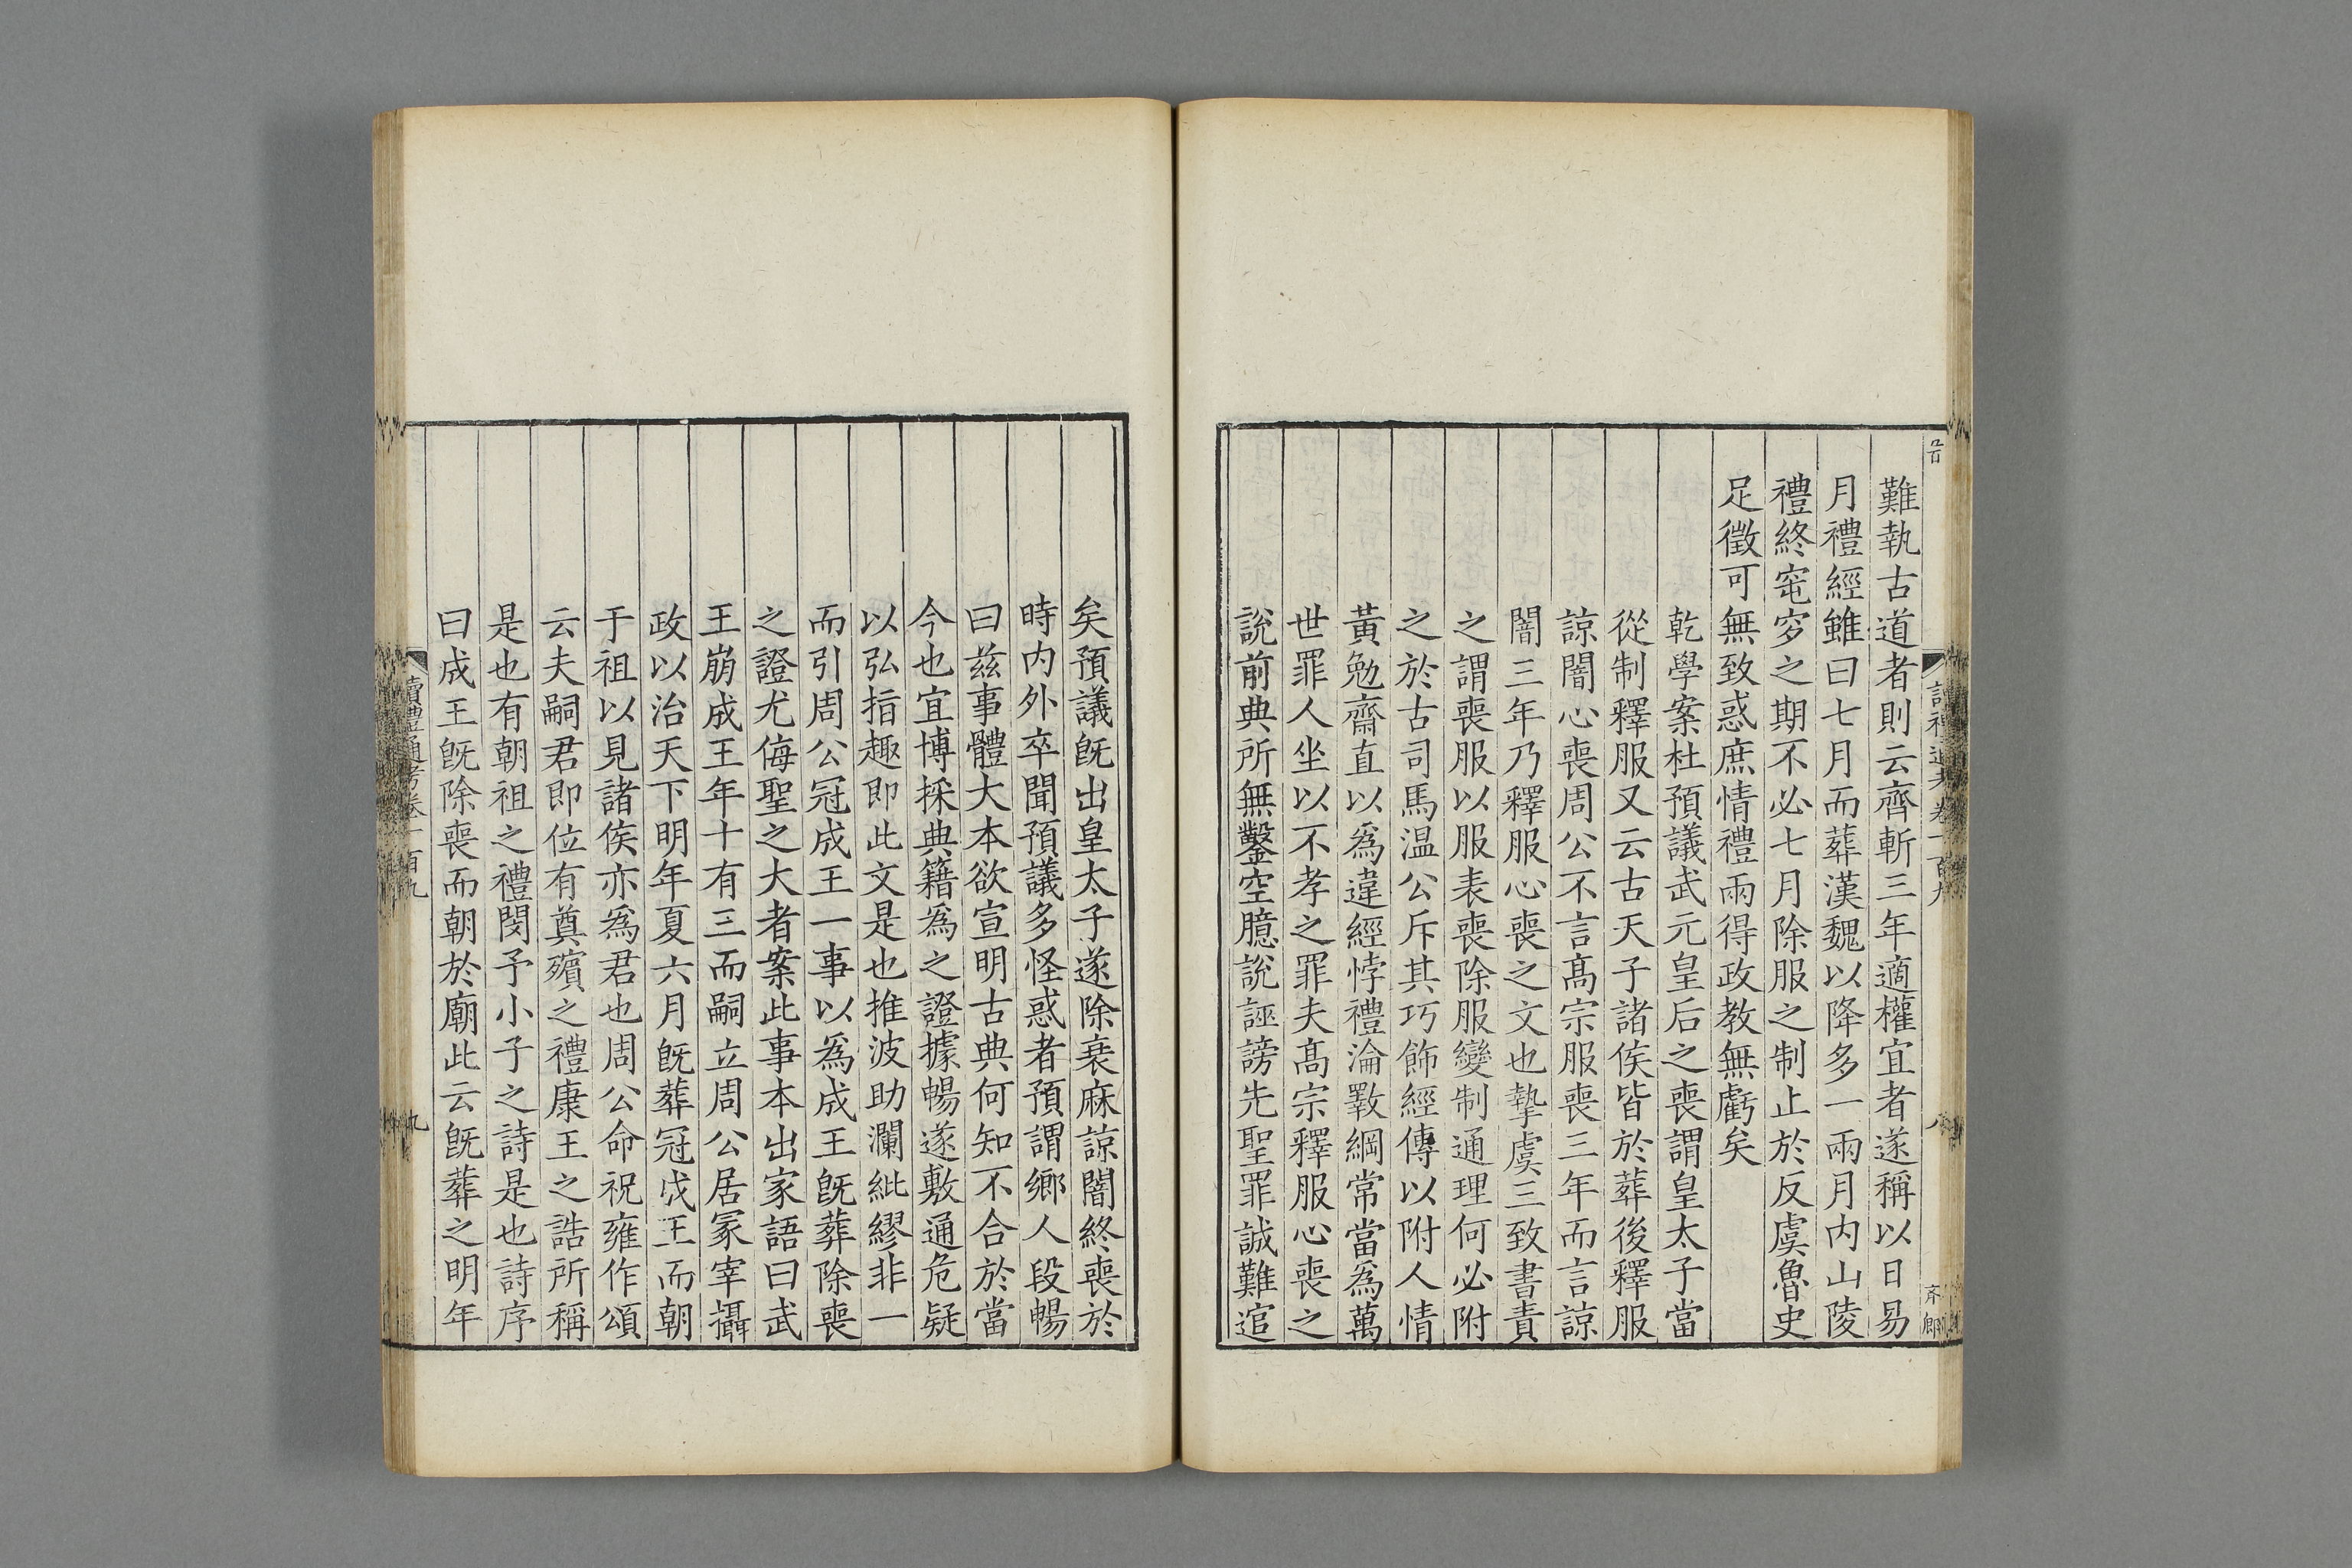 難執古道者則云齊斬三年適權宜者遂稱以日易
月禮經雖曰七月而葬漢魏以降多一兩月内山陵
禮終窀穸之期不必七月除服之制止於反虞魯史
足徵可無致惑庶情禮兩得政教無虧矣
乾學案杜預議武元皇后之喪謂皇太子當
從制釋服又云古天子諸侯皆於葬後釋服
諒闇心喪周公不言髙宗服喪三年而言諒
闇三年乃釋服心喪之文也摯虞三致書責
之謂喪服以服表喪除服變制通理何必附
之於古司馬温公斥其巧飾經傳以附人情
黃勉齋直以爲違經悖禮淪斁綱常當爲萬
世罪人坐以不孝之罪夫髙宗釋服心喪之
說前典所無鑿空臆說誣謗先聖罪誠難逭
矣預議旣出皇太子遂除衰麻諒闇終喪於
時内外卒聞預議多怪惑者預謂鄉人段暢
曰兹事體大本欲宣明古典何知不合於當
今也宜博採典籍爲之證據暢遂敷通危疑
以弘指趣即此文是也推波助瀾紕繆非一
而引周公冠成王一事以爲成王旣葬除喪
之證尤侮聖之大者案此事本出家語曰武
王崩成王年十有三而嗣立周公居冡宰攝
政以治天下明年夏六月旣葬冠成王而朝
于祖以見諸侯亦爲君也周公命祝雍作頌
云夫嗣君即位有奠殯之禮康王之誥所稱
是也有朝祖之禮閔予小子之詩是也詩序
曰成王旣除喪而朝於廟此云旣葬之明年
讀禮通考卷一百九
九